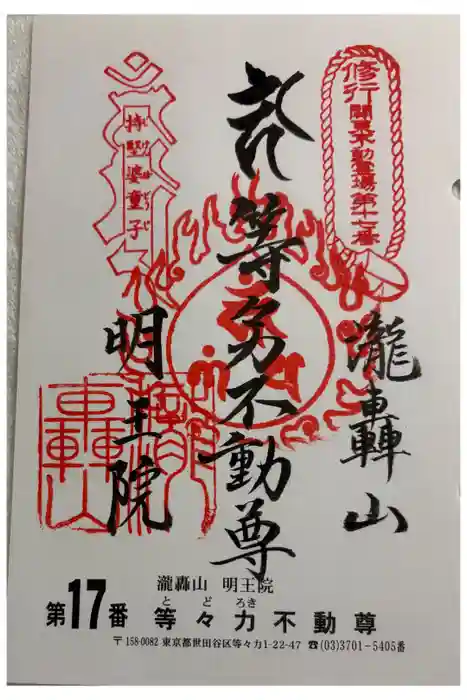 修行
関東不動霊場第十七番
瀧轟山
等々力不動尊
持堅婆童子
じけんばどうじ
明王院
瀧轟山
瀧轟山 明王院
とどろき
第17番 等々力不動尊
〒158-0082 東京都世田谷区等々力1-22-47 ☎(03)3701-5405番